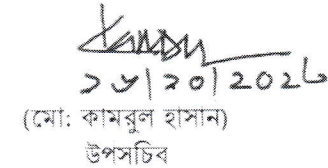 ২৮|১০|২০২৫
(মো: কামরুল হাসান)
উপসচিব